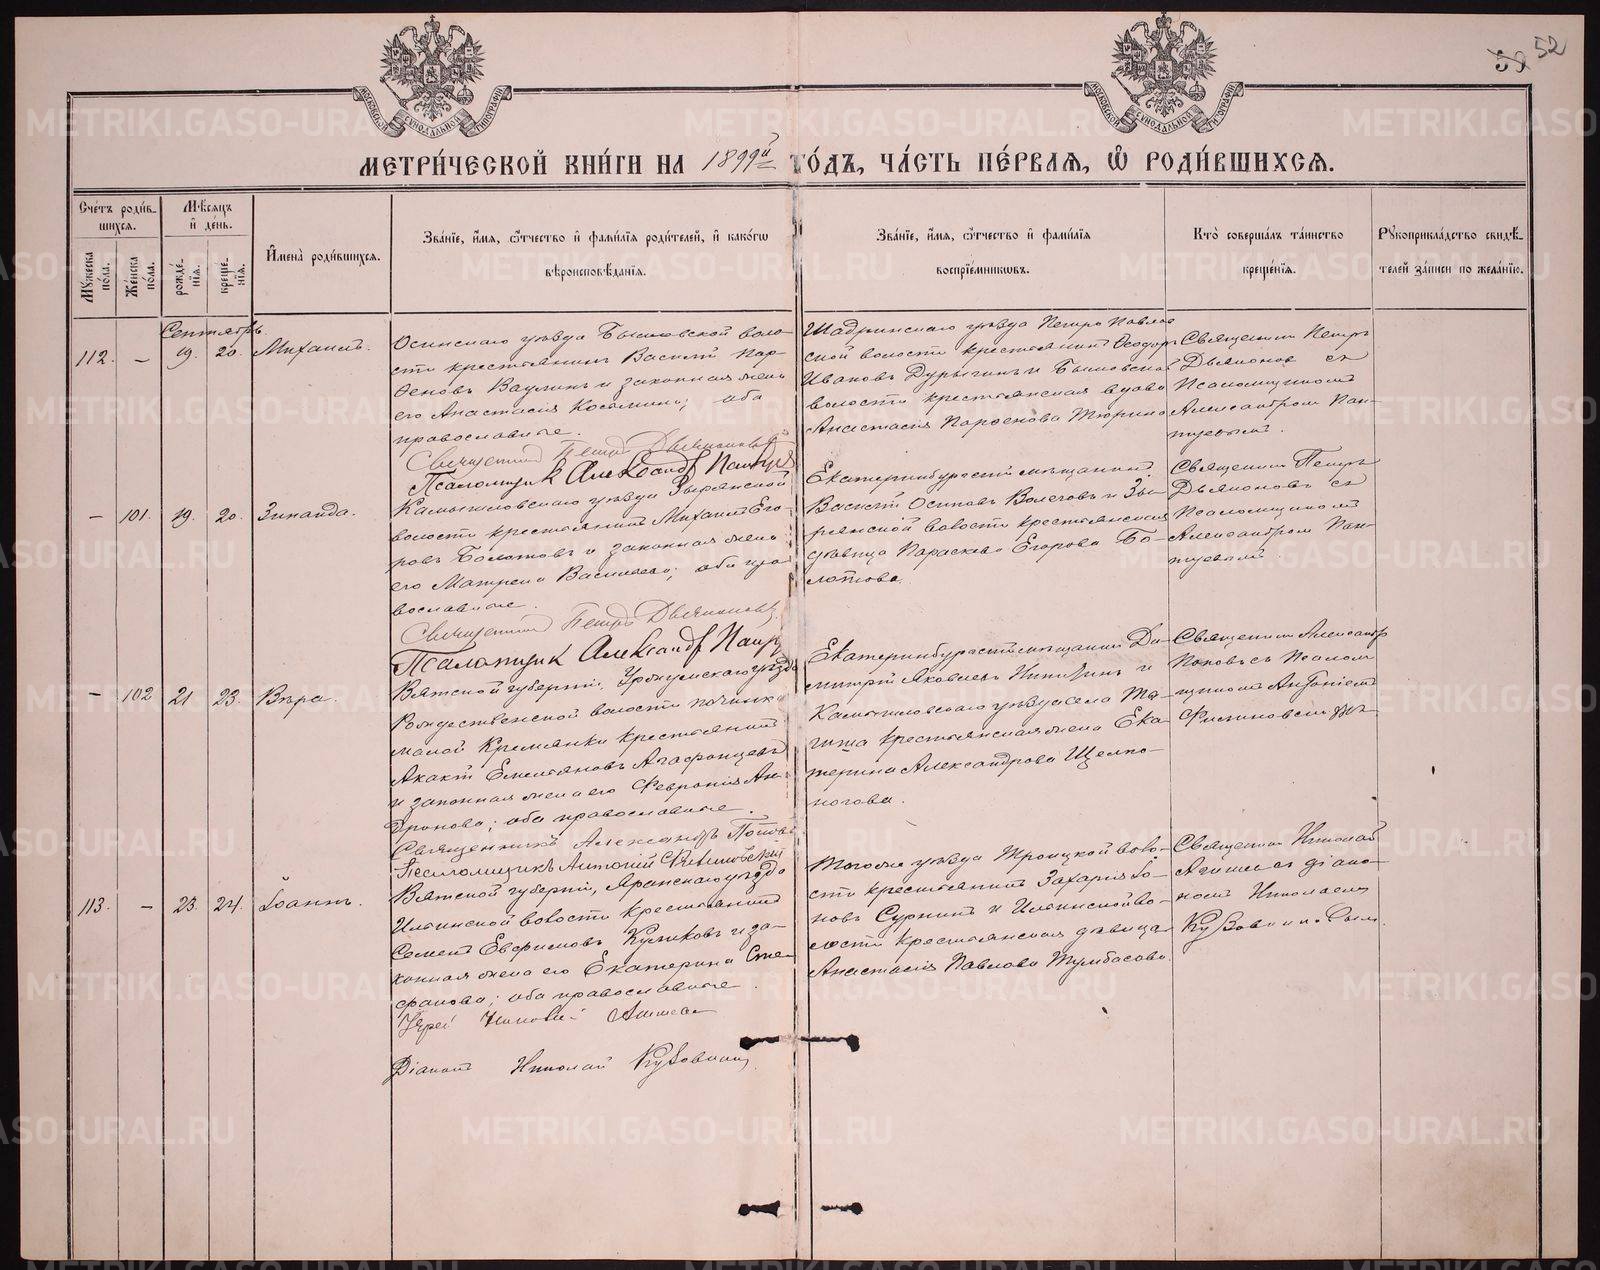 59 52
МОСКОВСКОЙ СѴНОДАЛЬНОЙ ТИПОГРАФІИ
МОСКОВСКОЙ СѴНОДАЛЬНОЙ ТИПОГРАФІИ
МЕТРИ́ЧЕСКОЙ КНИ́ГИ НА 1899й ГО́ДЪ, ЧА́СТЬ ПЕ́РВАѦ, Ѽ РОДИ́ВШИХСѦ.
Сче́тъ роди́в-
шихсѧ.
Мѣ́сѧцъ
и҆ де́нь.
И҆мена̀ роди́вшихсѧ.
Зва́нїе, и҆́мѧ, ѻ҆́тчество и҆ фами́лїѧ роди́телей, и҆ како́гѡ
вѣроисповѣ́данїѧ.
Зва́нїе, и҆́мѧ, ѻ҆́тчество и҆ фами́лїѧ
воспрїе́мникѡвъ.
Кто̀ соверша́лъ та́инство
креще́нїѧ.
Рꙋкоприкла́дство свидѣ́-
телей за́писи по жела́нїю.
Мꙋ́жеска
по́ла.
Же́нска
по́ла.
рожде́-
нїѧ.
креще́-
нїѧ.
Сентябрь.
112. – 19. 20. Михаилъ.
Осинскаго уѣзда Бымовской воло-
сти крестьянинъ Василій Пар-
ѳеновъ Ваулинъ и законная жена
его Анастасія Косьмина; оба
православные.
Священникъ Петръ Дьяконовъ
Псаломщик Александр Пантуев
Шадринскаго уѣзда Петро Павлов-
ской волости крестьянинъ Ѳеодоръ
Ивановъ Дурыгинъ и Бымовской
волости крестьянская вдова
Анастасія Парѳенова Тюрина
Священникъ Петръ
Дьяконов съ
Псаломщикомъ
Александром Пан-
туевым.
– 101. 19. 20. Зинаида.
Камышловскаго уѣзда Зырянской
волости крестьянинъ Михаилъ Его-
ровъ Болотовъ и законная жена
его Матрена Васильева; оба пра-
вославные.
Священникъ Петръ Дьяконовъ
Псаломщик Александр Панту
Екатеринбургскій мѣщанинъ
Василій Осиповъ Волеговъ и Зы-
рянской волости крестьянская
дѣвица Параскева Егорова Бо-
лотова.
Священникъ Петръ
Дьяконовъ съ
Псаломщикомъ
Александром Пан-
туевым.
– 102 21 23. Вѣра.
Вятской губерніи, Уржумскаго уѣзда
Рождественской волости починка
малой Кремянки крестьянинъ
Акакій Емельяновъ Агафонцевъ
и законная жена его Февронія Ан-
дронова; оба православные.
Священникъ Александръ Поповъ
Псаломщикъ Антоній Филиновскій
Екатеринбургскій мѣщанинъ Ди-
митрій Яковлевъ Никитинъ и
Камышловскаго уѣзда села Та-
гила крестьянская жена Ека-
терина Александрова Щелко-
ногова.
Священникъ Александръ
Поповъ съ Псалом-
щикомъ Антоніемъ
Филиновскимъ.
113. – 23. 24. Іоаннъ.
Вятской губерніи, Яранскаго уѣзда
Ильинской волости крестьянинъ
Семенъ Евфимовъ Куликовъ и за-
конная жена его Екатерина Сте-
фанова; оба православные.
Іерей Николай
Діаконъ Николай Кузовникъ
Того же уѣзда Троицкой воло-
сти крестьянинъ Захарія Іо-
новъ Суркинъ и Ильинской во-
лости крестьянская дѣвица
Анастасія Павлова Тумбасова
Священникъ Николай
съ діако-
номъ Николаемъ
METRIKI.GASO-URAL.RU